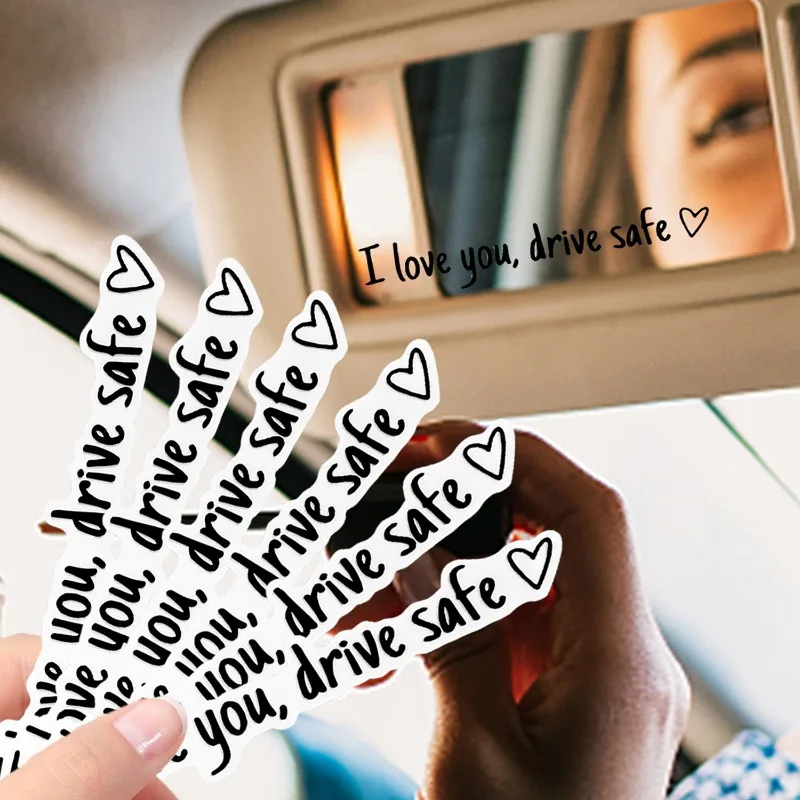 I love you, drive safe ♡
you, drive safe ♡
ove you, drive safe ♡
you, drive safe ♡
you, drive safe ♡
you, drive safe ♡
you, drive safe ♡